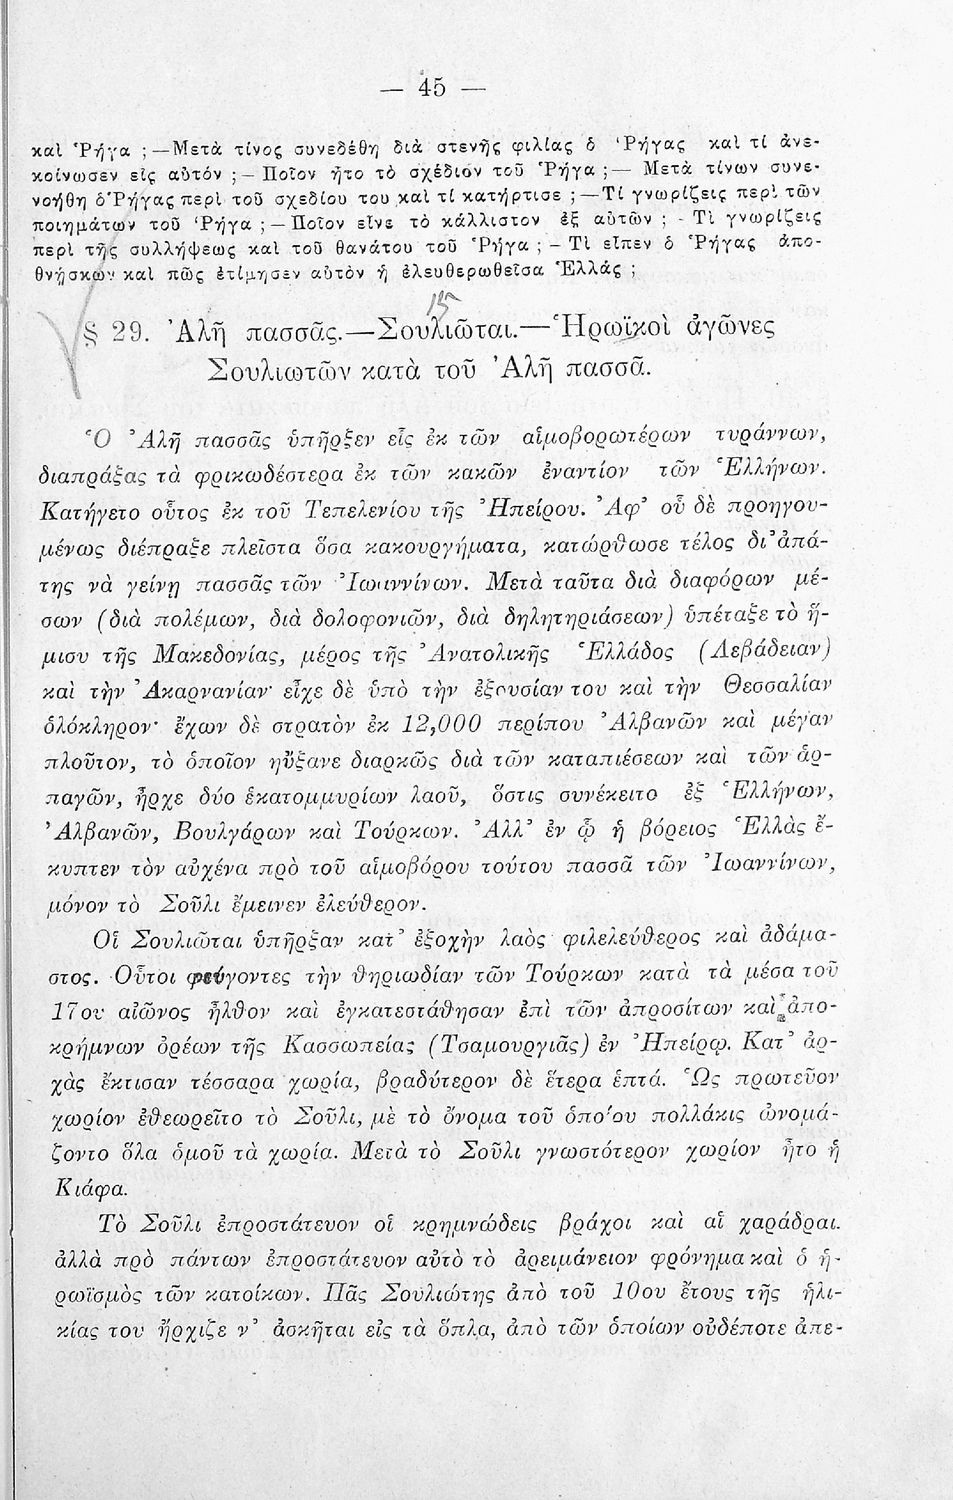 — 45 —
καὶ Ῥήγα ; —Μετὰ τίνος συνεδέθη διὰ στενῆς φιλίας ὁ Ῥήγας καὶ τί ἀνε-
κοίνωσεν εἰς αὐτόν ; — Ποῖον ἦτο τὸ σχέδιον τοῦ Ῥήγα ;— Μετὰ τίνων συνε-
νοήθη ὁ Ῥήγας περὶ τοῦ σχεδίου του καὶ τί κατήρτισε ; —Τί γνωρίζεις περὶ τῶν
ποιημάτων τοῦ Ῥήγα ; — Ποῖον εἶνε τὸ κάλλιστον ἐξ αὐτῶν ; - Τὶ γνωρίζεις
περὶ τῆς συλλήψεως καὶ τοῦ θανάτου τοῦ Ῥήγα ; — Τὶ εἶπεν ὁ Ῥήγας ἀπο-
θνήσκων καὶ πῶς ἐτίμησεν αὐτὸν ἡ ἐλευθερωθεῖσα Ἑλλάς ;
15
§ 29. Ἀλῆ πασσᾶς.—Σουλιῶται.—Ἡρωϊκοὶ ἀγῶνες
Σουλιωτῶν κατὰ τοῦ Ἀλῆ πασσᾶ.
Ὁ Ἀλῆ πασσᾶς ὑπῆρξεν εἷς ἐκ τῶν αἱμοβορωτέρων τυράννων,
διαπράξας τὰ φρικωδέστερα ἐκ τῶν κακῶν ἐναντίον τῶν Ἑλλήνων.
Κατήγετο οὗτος ἐκ τοῦ Τεπελενίου τῆς Ἠπείρου. Ἀφ’ οὗ δὲ προηγου-
μένως διέπραξε πλεῖστα ὅσα κακουργήματα, κατώρθωσε τέλος δι’ ἀπά-
της νὰ γείνῃ πασσᾶς τῶν Ἰωαννίνων. Μετὰ ταῦτα διὰ διαφόρων μέ-
σων (διὰ πολέμων, διὰ δολοφονιῶν, διὰ δηλητηριάσεων) ὑπέταξε τὸ ἥ-
μισυ τῆς Μακεδονίας, μέρος τῆς Ἀνατολικῆς Ἑλλάδος (Λεβάδειαν)
καὶ τὴν Ἀκαρνανίαν· εἶχε δὲ ὑπὸ τὴν ἐξουσίαν του καὶ τὴν Θεσσαλίαν
ὁλόκληρον· ἔχων δὲ στρατὸν ἐκ 12,000 περίπου Ἀλβανῶν καὶ μέγαν
πλοῦτον, τὸ ὁποῖον ηὔξανε διαρκῶς διὰ τῶν καταπιέσεων καὶ τῶν ἁρ-
παγῶν, ἦρχε δύο ἑκατομμυρίων λαοῦ, ὅστις συνέκειτο ἐξ Ἑλλήνων,
Ἀλβανῶν, Βουλγάρων καὶ Τούρκων. Ἀλλ’ ἐν ᾧ ἡ βόρειος Ἑλλὰς ἔ-
κυπτεν τὸν αὐχένα πρὸ τοῦ αἱμοβόρου τούτου πασσᾶ τῶν Ἰωαννίνων,
μόνον τὸ Σοῦλι ἔμεινεν ἐλεύθερον.
Οἱ Σουλιῶται ὑπῆρξαν κατ’ ἐξοχὴν λαὸς φιλελεύθερος καὶ ἀδάμα-
στος. Οὗτοι φεύγοντες τὴν θηριωδίαν τῶν Τούρκων κατὰ τὰ μέσα τοῦ
17ου αἰῶνος ἦλθον καὶ ἐγκατεστάθησαν ἐπὶ τῶν ἀπροσίτων καὶ ἀπο-
κρήμνων ὀρέων τῆς Κασσωπείας (Τσαμουργιᾶς) ἐν Ἠπείρῳ. Κατ’ ἀρ-
χὰς ἔκτισαν τέσσαρα χωρία, βραδύτερον δὲ ἕτερα ἑπτά. Ὡς πρωτεῦον
χωρίον ἐθεωρεῖτο τὸ Σοῦλι, μὲ τὸ ὄνομα τοῦ ὁποίου πολλάκις ὠνομά-
ζοντο ὅλα ὁμοῦ τὰ χωρία. Μετὰ τὸ Σοῦλι γνωστότερον χωρίον ἦτο ἡ
Κιάφα.
Τὸ Σοῦλι ἐπροστάτευον οἱ κρημνώδεις βράχοι καὶ αἱ χαράδραι.
ἀλλὰ πρὸ πάντων ἐπροστάτευον αὐτὸ τὸ ἀρειμάνειον φρόνημα καὶ ὁ ἡ-
ρωϊσμὸς τῶν κατοίκων. Πᾶς Σουλιώτης ἀπὸ τοῦ 10ου ἔτους τῆς ἡλι-
κίας του ἤρχιζε ν’ ἀσκῆται εἰς τὰ ὅπλα, ἀπὸ τῶν ὁποίων οὐδέποτε ἀπε-